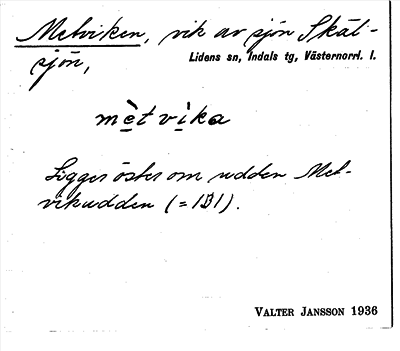 Metviken, vik av sjön Skäl-
sjön,
Lidens sn, Indals tg, Västernorrl. l.
mètvìka
Ligger öster om udden Met-
vikudden (=1D1).
VALTER JANSSON 1936